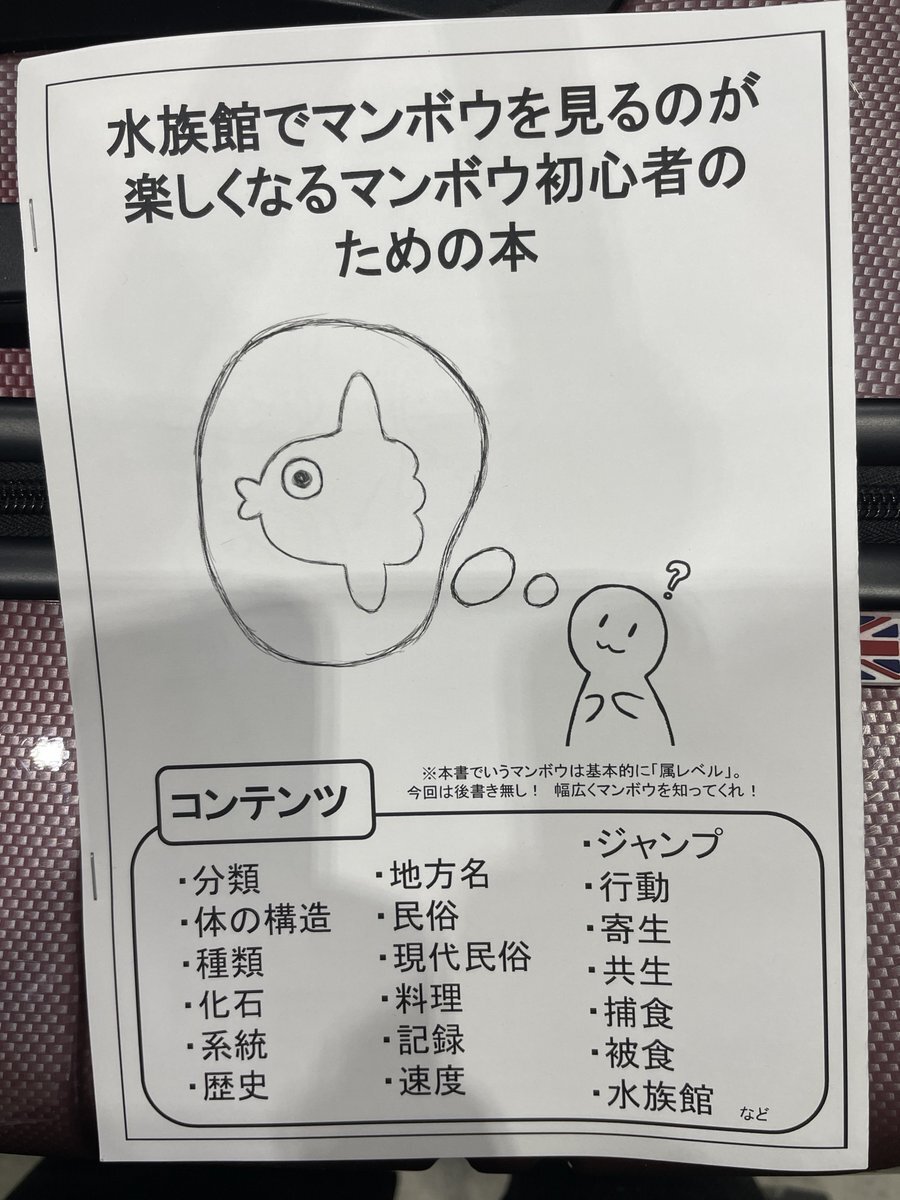 水族館でマンボウを見るのが
楽しくなるマンボウ初心者の
ための本
?
※本書でいうマンボウは基本的に「属レベル」。
今回は後書き無し！ 幅広くマンボウを知ってくれ！
コンテンツ
・分類
・体の構造
・種類
・化石
・系統
・歴史
・地方名
・民俗
・現代民俗
・料理
・記録
・速度
・ジャンプ
・行動
・寄生
・共生
・捕食
・被食
・水族館
など